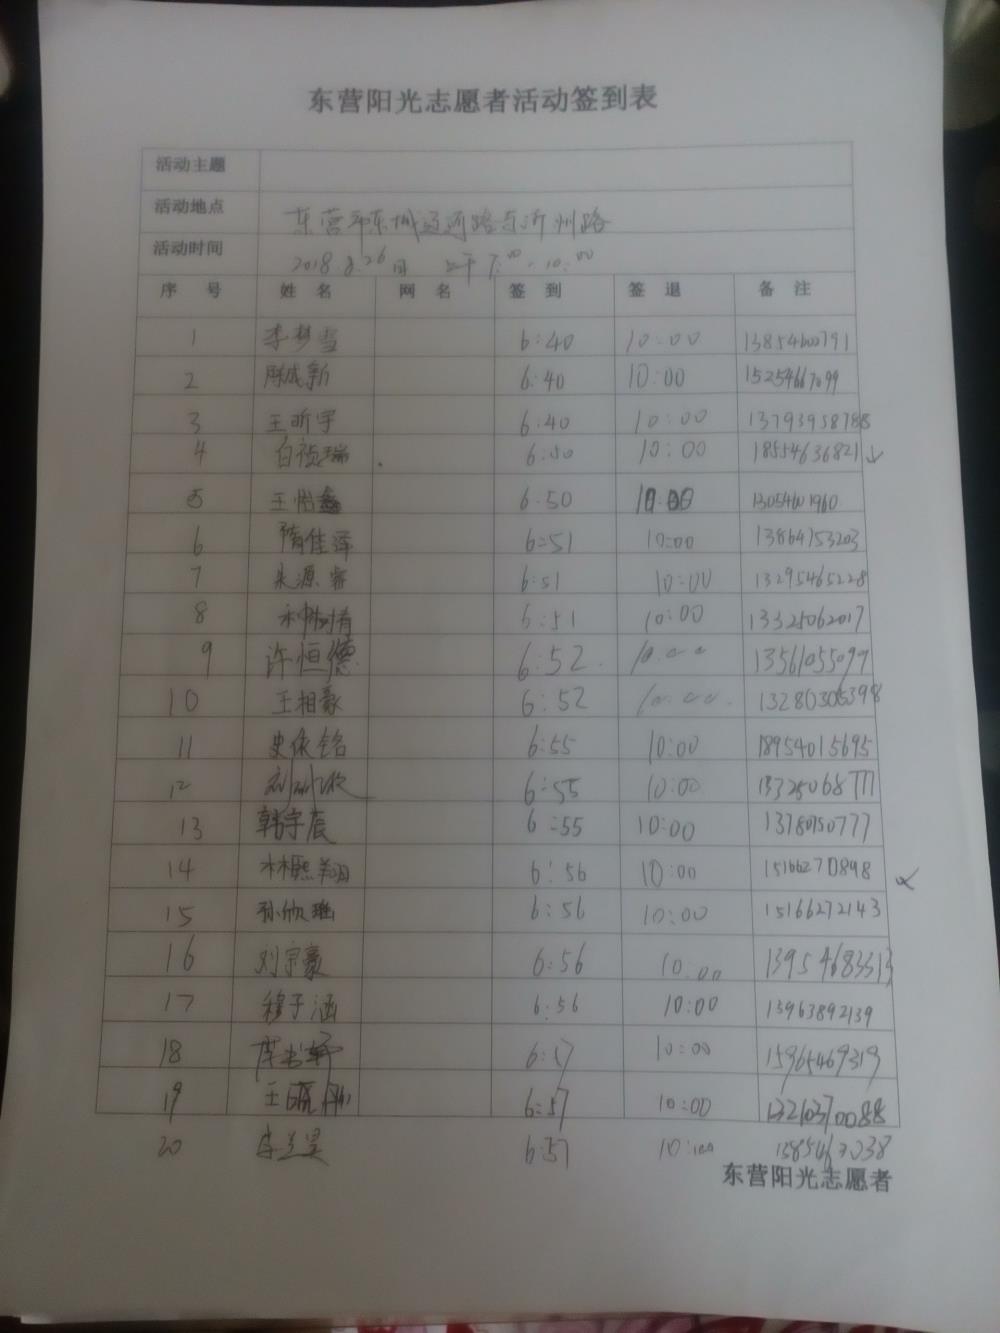 东营阳光志愿者活动签到表
活动主题
活动地点 东营市东城 河路与沂州路
活动时间 2018.8.26日 上午7:00-10:00
序 号 姓 名 网 名 签 到 签 退 备 注
1 李梦雪 6:40 10:00 13854600791
2 陈成新 6:40 10:00 15254667099
3 王昕宇 6:40 10:00 13793958788
4 白祯瑞 6:50 10:00 18554636821
5 王怡鑫 6:50 10:00 13054601960
6 隋佳泽 6:51 10:00 13864753203
7 朱源睿 6:51 10:00 13295465228
8 6:51 10:00 13325062017
9 许恒德 6:52 10:00 13561055099
10 王相豪 6:52 10:00 13280305398
11 史依铭 6:55 10:00 18954015695
12 6:55 10:00
13 韩宇辰 6:55 10:00
14 林熙翔 6:56 10:00 15166270898
15 孙欣瑶 6:56 10:00 15166272143
16 刘宗豪 6:56 10:00 13954683313
17 穆子涵 6:56 10:00 15963892139
18 6:57 10:00 15965469319
19 王 6:57 10:00 13210370088
20 6:57 10:00
东营阳光志愿者